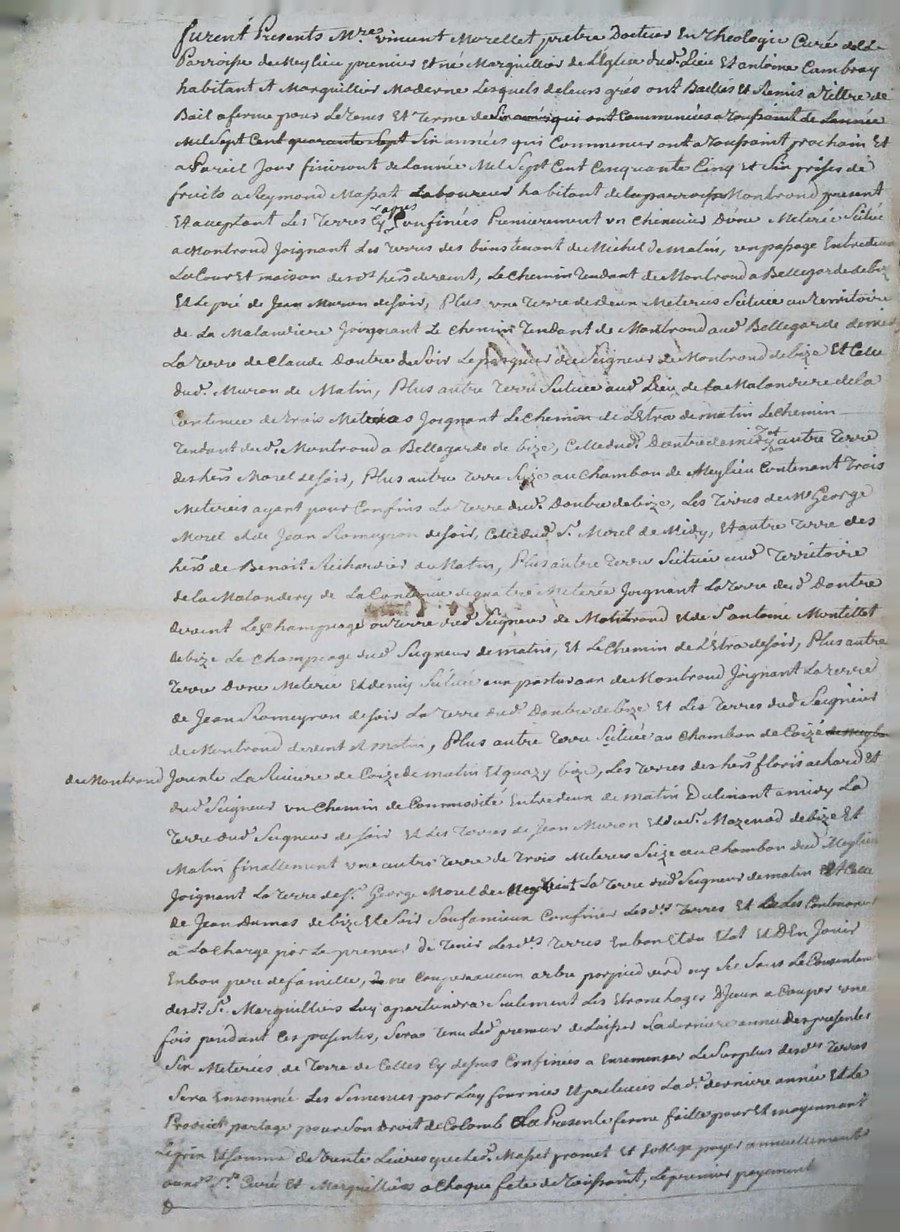 furent Presents Mre. vincent Morellet prêtre Docteur En Theologie Curé de La
Parroisse de Meylieu premier Et né Marguillier de L'Eglise dud. Lieu Et antoine Cambray
habitant Et Marguillier Moderne Lesquels de leurs grés ont Baillés Et Remis a Tiltre de
Bail a ferme pour Le Tems Et Terme de Six années qui ont Commencées a Toussaint de L'année
Mil Sept Cent quarante Sept Six années qui Commenceront a Toussaint prochain Et
a Pareil Jour finiront de L'année Mil Sept Cent Cinquante Cinq et Six prises de
fruits a Reymond Massat Laboureur habitant de la parroisse Montrond present
Et acceptant Les Terres Cy apres Confinées Premierement un Chenevier d'une Meterée Situé
a Montrond Joignant Les terres des biens tenant de Michel de matin, un passage Entredeux
La Cour et maison des hers de vent, Le Chemin Tendant de Montrond a Bellegarde de bize
Et Le pré de Jean Muron de soir, Plus une Terre de deux Meterées Située au Territoire
de La Malandiere Joignant Le Chemin Tendant de Montrond aud. Bellegarde de midy
La Terre de Claude Doutre de Soir Le pasquier du Seigneur de Montrond de bize Et Celle
dud. Muron de Matin, Plus autre Terre Située aud. Lieu de La Malandiere de la
Contenue de trois Meterées Joignant Le Chemin de L'Etra de matin Le Chemin
Tendant dud. Montrond a Bellegarde de bize, Celle dud. Doutre de midy et autre Terre
des hers Morel de soir, Plus autre Terre Size au Chambon de Meylieu Contenant Trois
Meterées ayant pour Confins La Terre dud. Doutre de bize, Les Terres de Mr George
Morel et de Jean Romeyron de soir, Celle dud. Sr. Morel de Midy, Et autre Terre des
hers de Benoit Richardier de Matin, Plus autre Terre Située aud. Territoire
de la Malandery de La Contenue de quatre Meterée Joignant La Terre dud. Doutre
de vent Le Champeage ou Terre dud. Seigneur de Montrond Et de Sr antoine Montillet
de bize Le Champeage dud. Seigneur de matin, Et Le Chemin de L'Etra de soir, Plus autre
Terre d'une Meterée Et demy Située aux pasturaux de Montrond Joignant La Terre
de Jean Romeyron de soir La Terre dud. Doutre de bize Et Les Terres dud. Seigneur
de Montrond de vent et matin, Plus autre Terre Située au Chambon de Coize
de Montrond Jointe La Riviere de Coize de matin Et quazy bize, Les Terres des hers floris achard Et
dud. Seigneur un Chemin de Commodité Entredeux de matin Declinant a midy La
Terre dud. Seigneur de soir Et Les Terres de Jean Muron Et dud. Mazenod de bize Et
Matin finallement une autre Terre de Trois Meterées Size au Chambon dud. Meylieu
Joignant La Terre de Sr. George Morel de vent La Terre dud. Seigneur de matin Et Celle
de Jean Dumas de bize Et Soir Sauf a mieux Confiner Lesd. Terres Et Les Contenances
a La Charge par Le preneur de Tenir Lesd. Terres En bon Et du Etat Et D'En Jouir
En bon pere de famille, ne Couper aucun arbre par pied verd ny Sec Sans Le Consentement
desd. Srs. Marguilliers Luy apartiendra Seulement Les Etronchages D'Iceux a Couper une
fois pendant Ces presentes, Sera Tenu Led. preneur de Laisser La derniere année Des presentes
Six Meterées de Terre de Celles Cy dessus Confinées a Ensemenser Le Surplus desd. Terres
Sera Ensemencé Les Semences par Luy fournies Et prelevées Lad. derniere année Et Le
Produit partagé pour Son Droit de Colomb La Presente ferme faite pour Et moyennant
Le prix Et Somme de Trente Livres que Led. Massat promet Et S'oblige payer annuellement
auxd. Srs. Curé Et Marguilliers a Chaque fete de Toussaint, Le premier payement